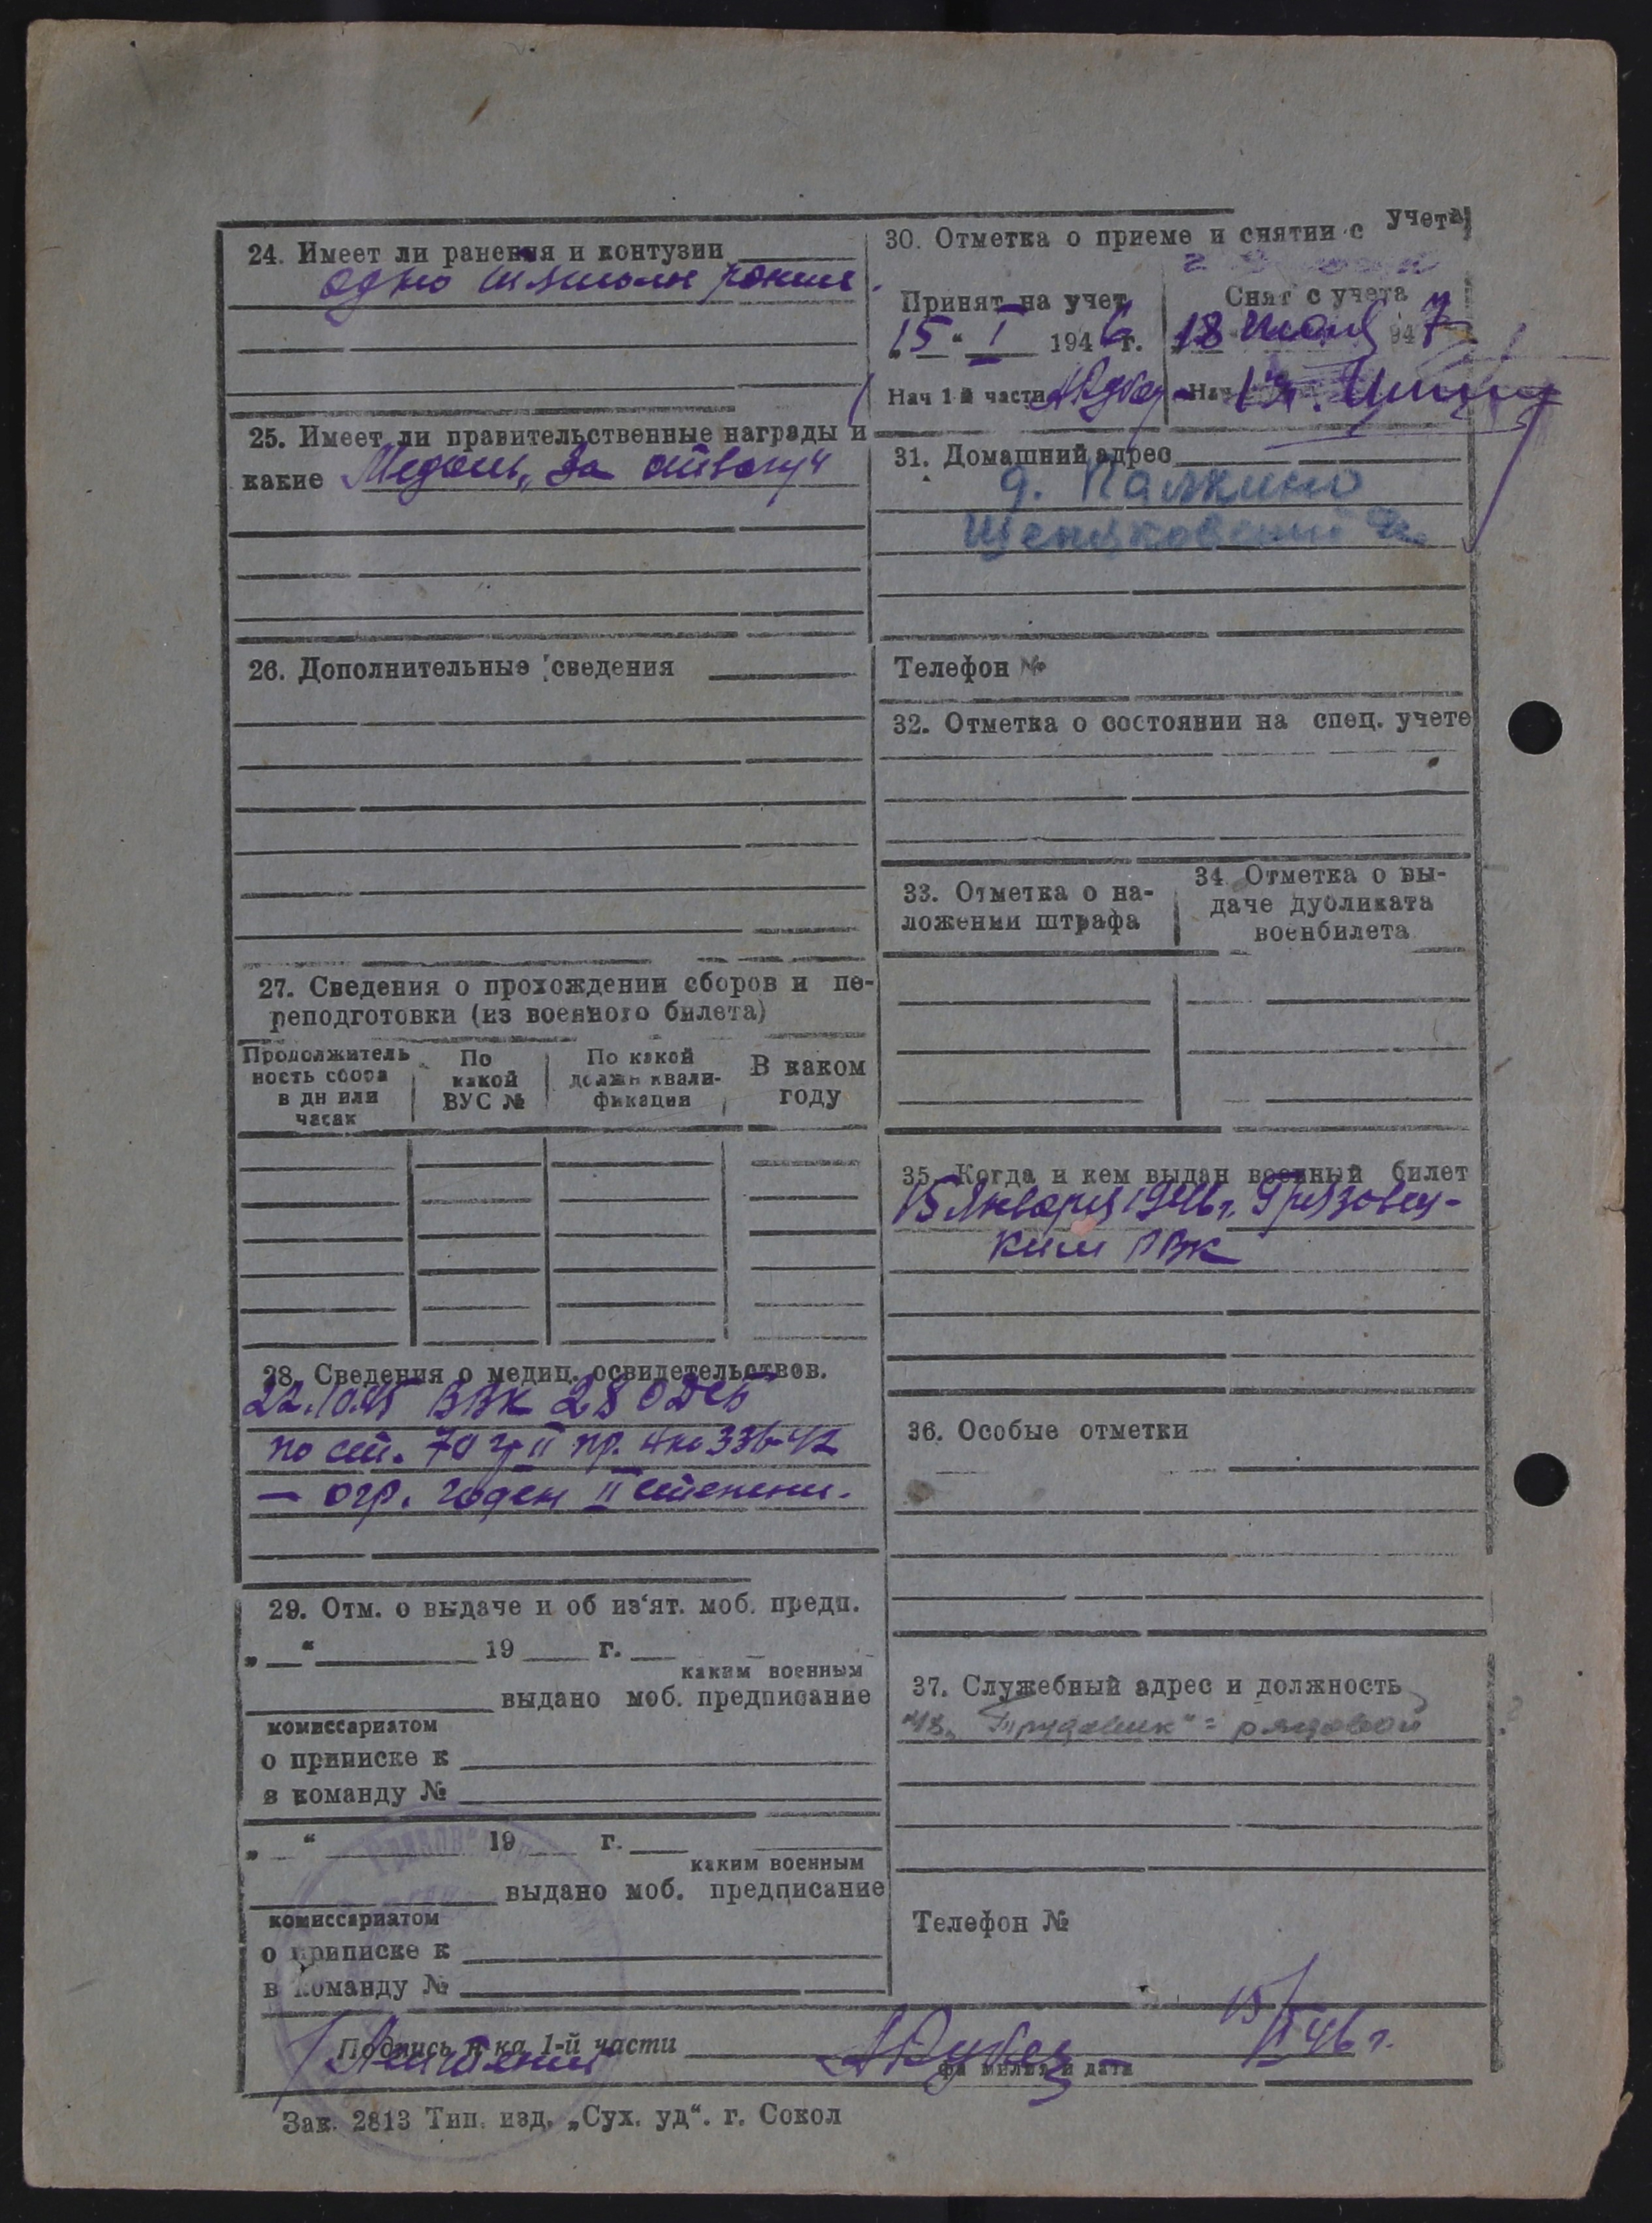 24. Имеет ли ранения и контузии
одно тяжолое ранение.
25. Имеет ли правительственные награды и
какие Медаль „За отвагу“
26. Дополнительные сведения
27. Сведения о прохождении сборов и пе-
реподготовки (из военного билета)
Продолжитель
ность сбора
в дн или
часах
По
какой
ВУС №
По какой
должн квали-
фикации
В каком
году
28. Сведения о медиц. освидетельствов.
22.10.45 ВВК
по ст. 70 гр II пр. 336-42
— огр. годен II степени.
29. Отм. о выдаче и об из‘ят. моб. предп.
„ “ 19 г.
каким военным
выдано моб. предписание
комиссариатом
о приписке к
в команду №
„ “ 19 г.
каким военным
выдано моб. предписание
комиссариатом
о приписке к
в команду №
30. Отметка о приеме и снятии с учета
Принят на учет
„15“ I 1946 г.
Нач 1 й части
Снят с учета
18 947
Нач
31. Домашний адрес
д. Палкино
Телефон №
32. Отметка о состоянии на спец. учете
33. Отметка о на-
ложении штрафа
34 Отметка о вы-
даче дубликата
военбилета
35. Когда и кем выдан военный билет
15 Января 1946 г. Грязовец-
ким РВК
36. Особые отметки
37. Служебный адрес и должность
„Трудовик“ = рядовой
Телефон №
Подпись н-ка 1-й части
15/I 46 г.
фамилия и дата
Зак. 2813 Тип. изд. „Сух. уд“. г. Сокол